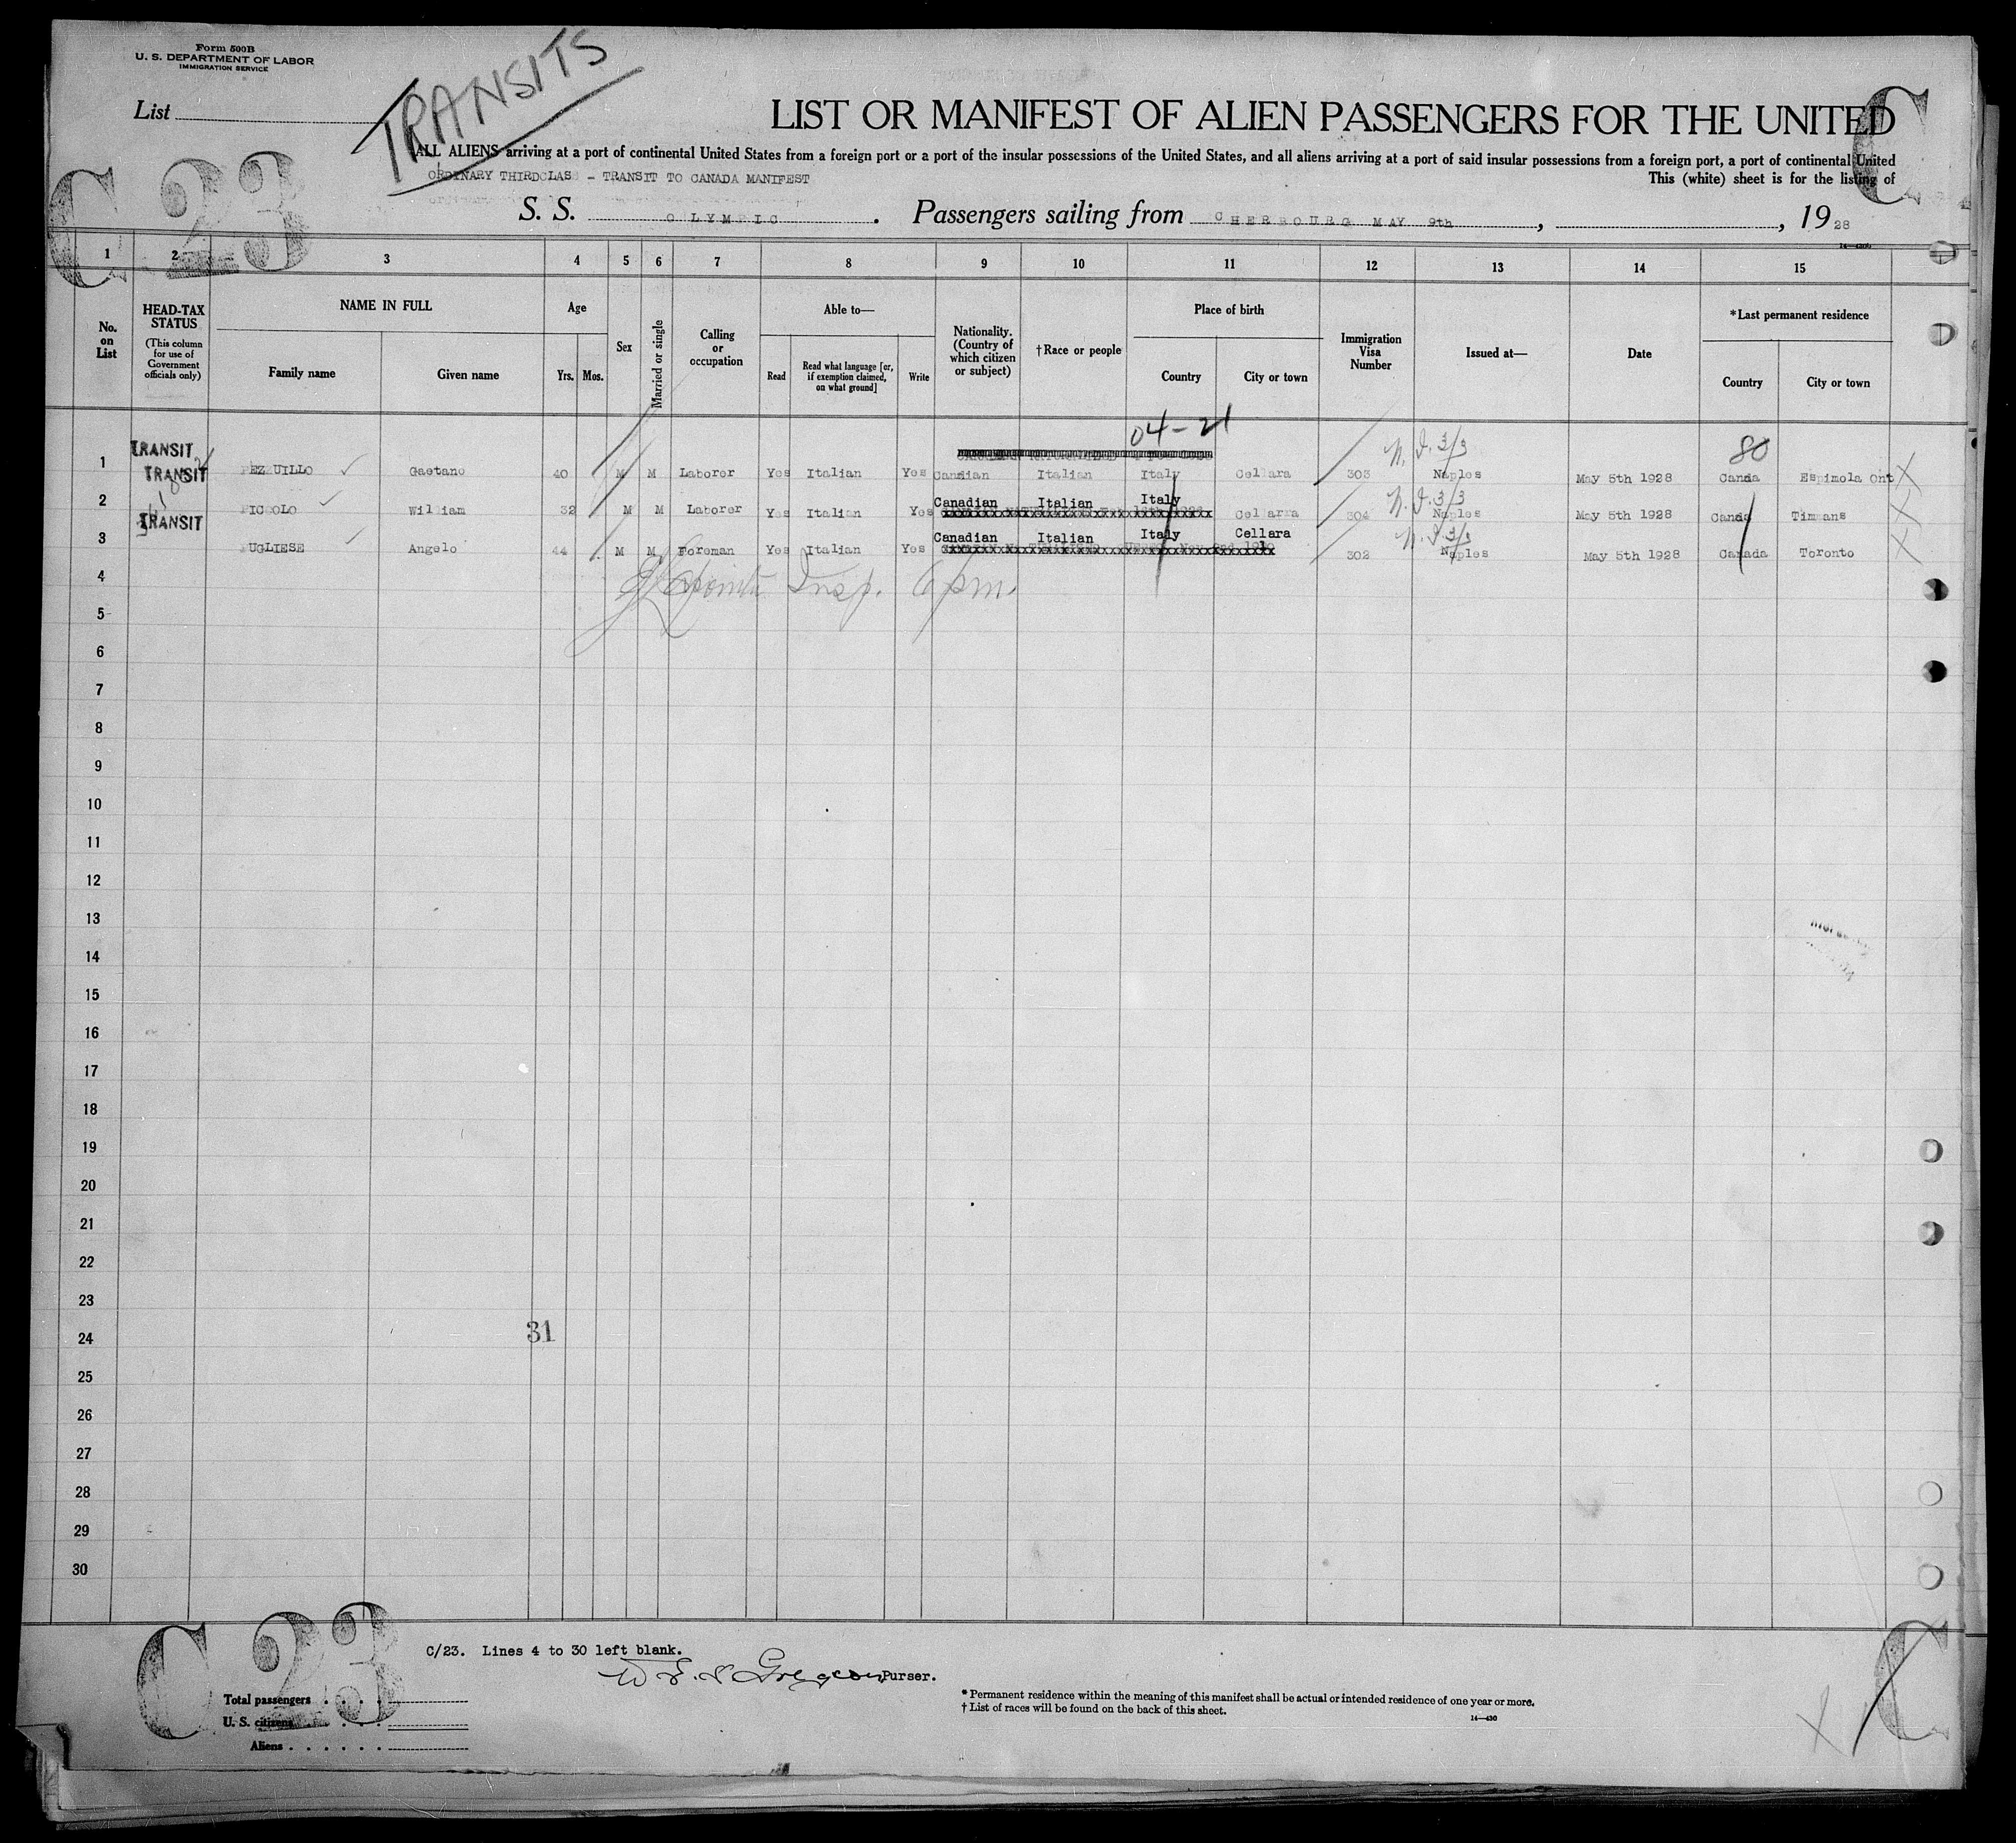 Form 500B
U. S. DEPARTMENT OF LABOR
IMMIGRATION SERVICE
TRANSITS
List
LIST OR MANIFEST OF ALIEN PASSENGERS FOR THE UNITED
C 23
C
ALL ALIENS arriving at a port of continental United States from a foreign port or a port of the insular possessions of the United States, and all aliens arriving at a port of said insular possessions from a foreign port, a port of continental United
ORDINARY THIRDCLASS - TRANSIT TO CANADA MANIFEST
This (white) sheet is for the listing of
S. S. OLYMPIC. Passengers sailing from CHERBOURG MAY 9th, , 1928
14—430b
1 2 3 4 5 6 7 8 9 10 11 12 13 14 15
No. on List
HEAD-TAX STATUS (This column for use of Government officials only)
NAME IN FULL
Family name
Given name
Age
Yrs. Mos.
Sex
Married or single
Calling or occupation
Able to—
Read
Read what language [or, if exemption claimed, on what ground]
Write
Nationality. (Country of which citizen or subject)
†Race or people
Place of birth
Country
City or town
Immigration Visa Number
Issued at—
Date
*Last permanent residence
Country
City or town
04-21
N. I. 3/3
80
TRANSIT
1 TRANSIT EZZUILLO Gaetano 40 M M Laborer Yes Italian Yes Canadian Italian Italy Cellara 303 Naples May 5th 1928 Canda Espimola Ont X
N. I. 3/3
2 PICCOLO William 32 M M Laborer Yes Italian Yes Canadian Italian Italy Cellarra 304 Naples May 5th 1928 Canda Timmans X
N. I. 3/3
3 TRANSIT UGLIESE Angelo 44 M M Foreman Yes Italian Yes Canadian Italian Italy Cellara 302 Naples May 5th 1928 Canada Toronto X
Insp. 6 pm.
4
5
6
7
8
9
10
11
12
13
14
15
16
17
18
19
20
21
22
23
24 31
25
26
27
28
29
30
C 23
C
C/23. Lines 4 to 30 left blank.
Purser.
Total passengers
U. S. citizens
Aliens
* Permanent residence within the meaning of this manifest shall be actual or intended residence of one year or more.
† List of races will be found on the back of this sheet.
14—430
X